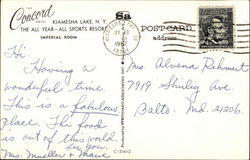 Concord
HOTEL
KIAMESHA LAKE, N.Y.
THE ALL YEAR - ALL SPORTS RESORT
IMPERIAL ROOM
POST CARD
address
1967
Hi
Having a
wonderful time
This is a fabulous
place. The food
is out of this world.
See you,
Mrs. Mueller & Marie
Ms. Alvena Rehmert
7919 Shirley Ave.
Balto. Md. 21206.
C-31612